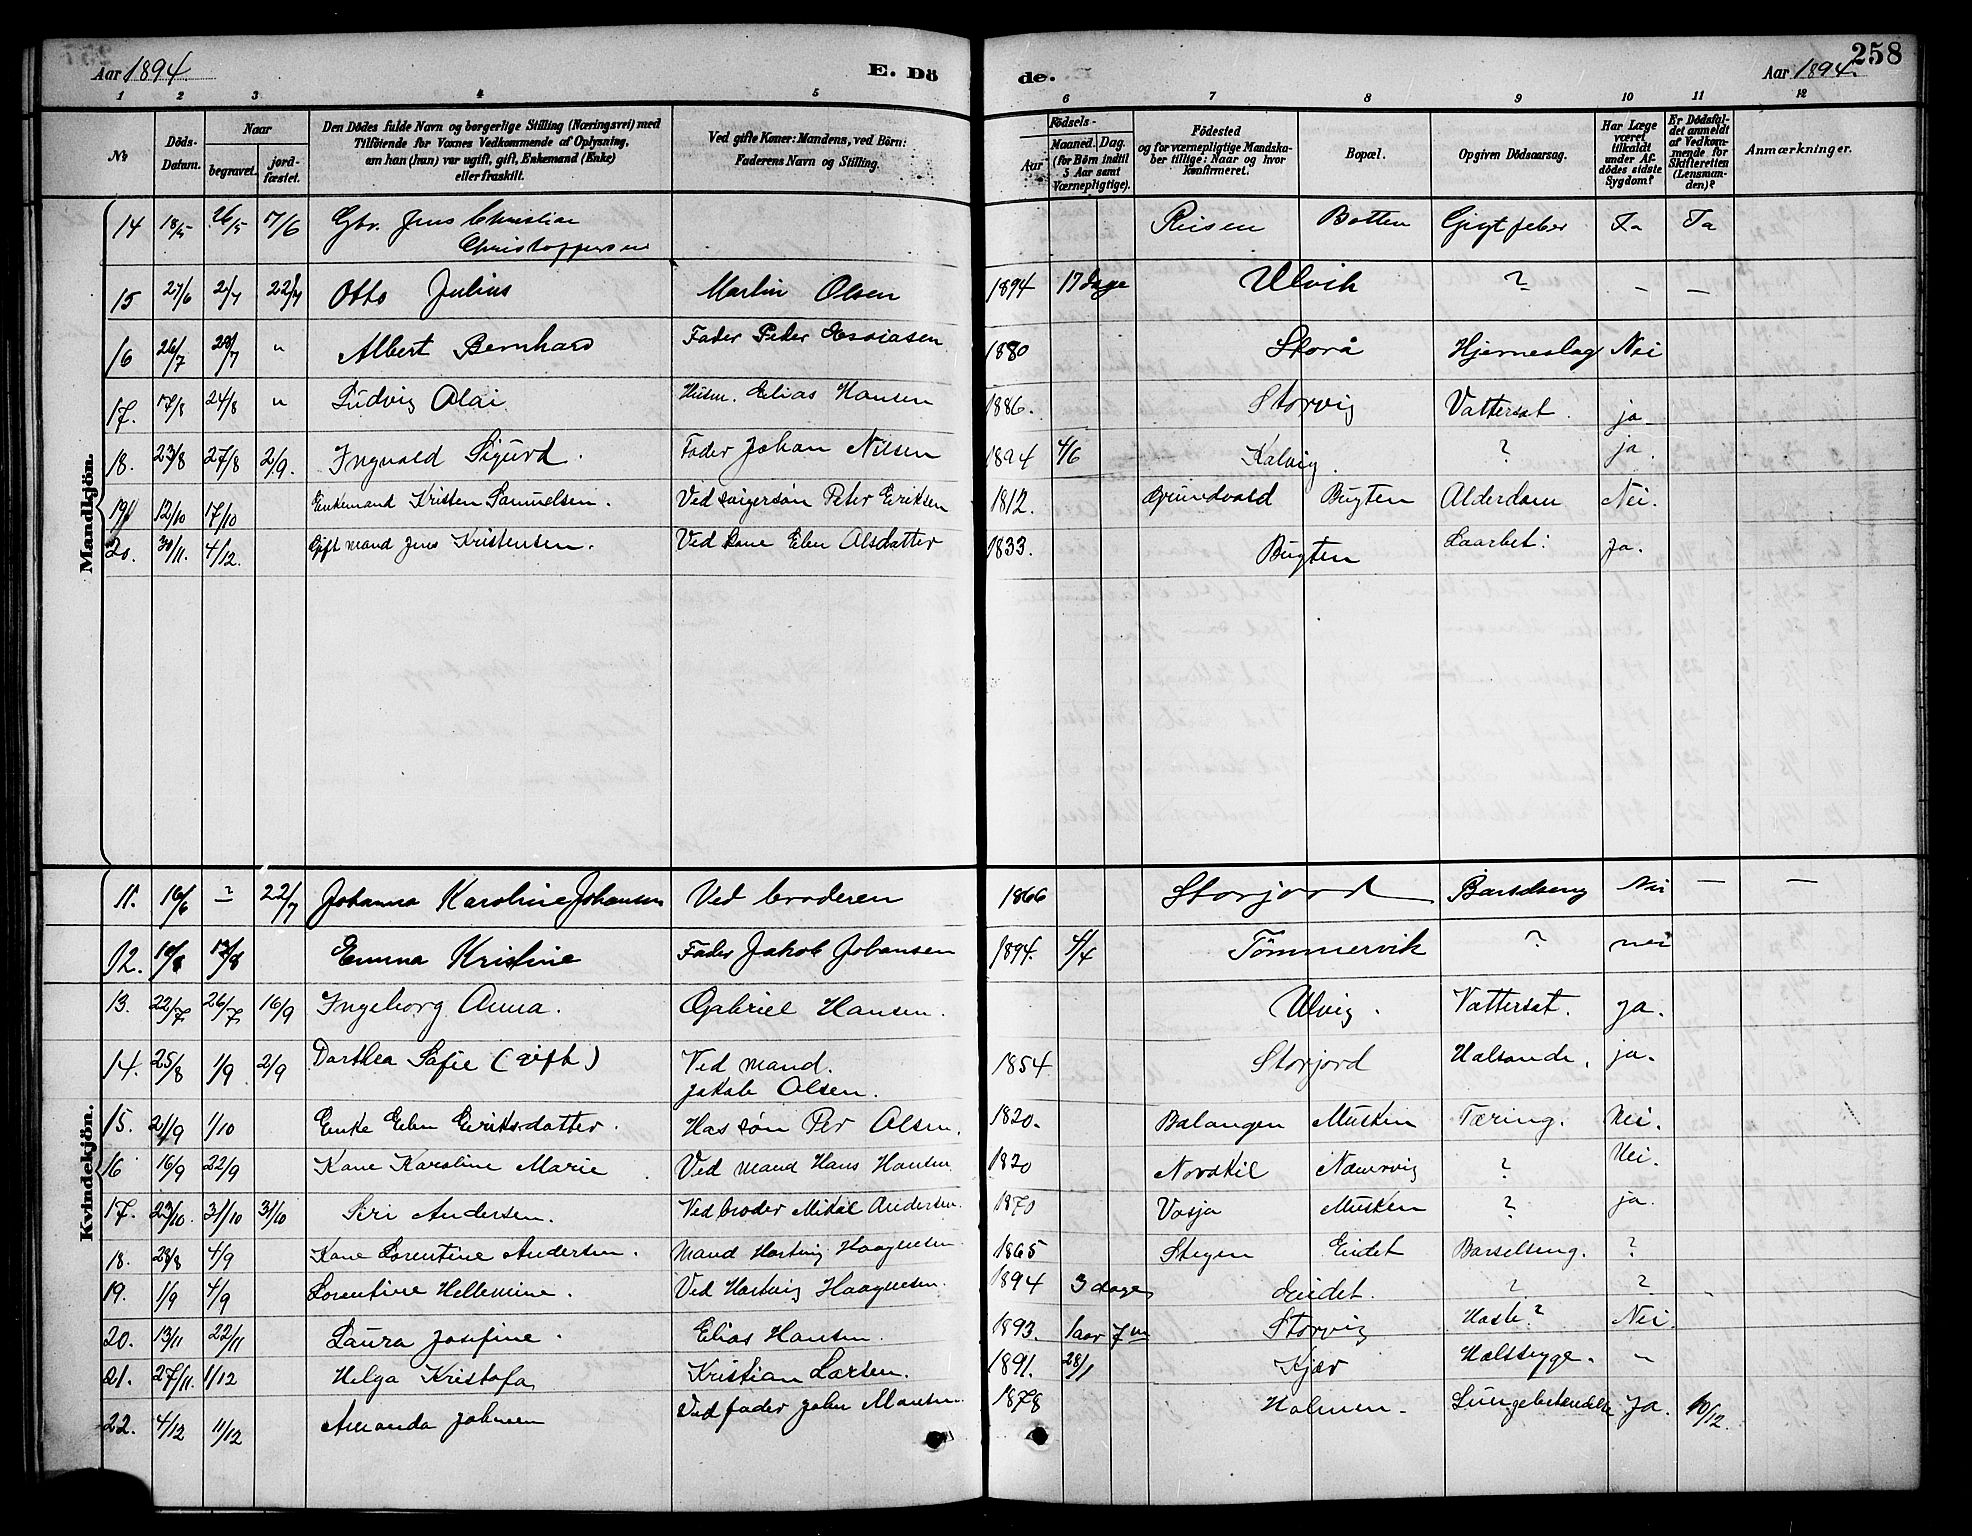 258
Aar 1894. E. Dö de. Aar 1894.
1 2 3 4 5 6 7 8 9 10 11 12
№
Döds-Datum.
Naar
begravet.
jord-fæstet.
Den Dödes fulde Navn og borgerlige Stilling (Næringsvei) med
Tilföiende for Voxnes Vedkommende af Oplysning,
om han (hun) var ugift, gift, Enkemand (Enke)
eller fraskilt.
Ved gifte Koner: Mandens, ved Börn:
Faderens Navn og Stilling.
Födsels-
Aar
Maaned. Dag.
(for Börn indtil
5 Aar samt
Værnepligtige).
Födested
og for værnepligtige Mandska-
ber tillige: Naar og hvor
konfirmeret.
Bopæl.
Opgiven Dödsaarsag.
Har Læge
været
tilkaldt
under Af-
dödes sidste
Sygdom?
Er Dödsfal-
det anmeldt
af Vedkom-
mende for
Skifteretten
(Lensman-
den)?
Anmærkninger.
Mandkjön.
14 18/5 26/5 7/6 Gbr. Jens Christian Reisen Botten Gigtfeber Ja Ja
Christoppersen
15 27/6 2/7 22/7 Otto Julius Martin Olsen 1894 17 dage Ulvik ? — —
16 26/7 29/7 " Albert Bernhard Fader Peder Essiasen 1880 Storå Hjerneslag Nei
17. 17/8 24/8 " Ludvig Olai Husm. Elias Hansen 1886. Storvig Vattersot. ja
18. 23/8 27/8 2/9. Ingvald Sigurd. Fader Johan Nilsen 1894 4/6 Kalvig. ? ja.
19 12/10 17/10 Enkemand Kristen Samuelsen. Ved svigersøn Peter Eriksen 1812. Grundvold Bugten Alderdom Nei.
20. 30/11. 4/12. Gift mand Jens Kristensen. Ved kone Elen Olsdatter 1833. Bugten Saarbet: Ja.
Kvindekjön.
11. 16/6 ? 22/7 Johanna Karoline Johansen Ved broderen 1866 Storjord Barselseng Nei — —
12. 10/8 13/8 Emma Kristine Fader Jakob Johansen 1894. 4/4 Tömmervik ? nei
13. 22/7 26/7 16/9 Ingeborg Anna. Gabriel Hansen. Ulvig. Vattersot. ja.
14. 25/8 1/9 2/9 Dorthea Sofie (gift) Ved mand. 1854 Storjord Halsonde. ja.
Jakob Olsen.
15. 21/9 1/10 Enke Elen Eriksdatter. Hos søn Per Olsen. 1820. Balangen Musken Tæring. Nei.
16 16/9 22/9 Kone Karoline Marie Ved mand Hans Hansen 1820 Nordkil ? Nei.
17. 23/10. 31/10 31/10 Siri Andersen. Ved broder Mikal Andersen. 1870 Vasja Musken ? ja.
18. 28/8 4/9 Kone Lorentine Andersen. Mand Hartvig Haagensen 1865 Stegen Eidet Barselseng. ?
19. 1/9 4/9 Lorentine Hellemine. Ved Hartvig Haagensen. 1894 3 dage Eidet. ? ?
20. 13/11 22/11 Laura Josefine. Elias Hansen. 1893. 1 aar 7 m Storvig Hoste? Nei.
21. 27/11. 1/12 Helga Kristofa Kristian Larsen. 1891. 28/1 Kjær Halssyge. "
22. 4/12 11/12 Amanda Johnsen Ved fader John Monsen 1878 Holmen. Lungebetændelse Ja. 10/12.